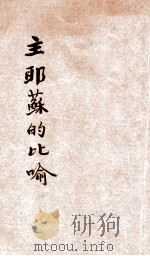 主耶蘇的比喻
研狗
mtoou.info